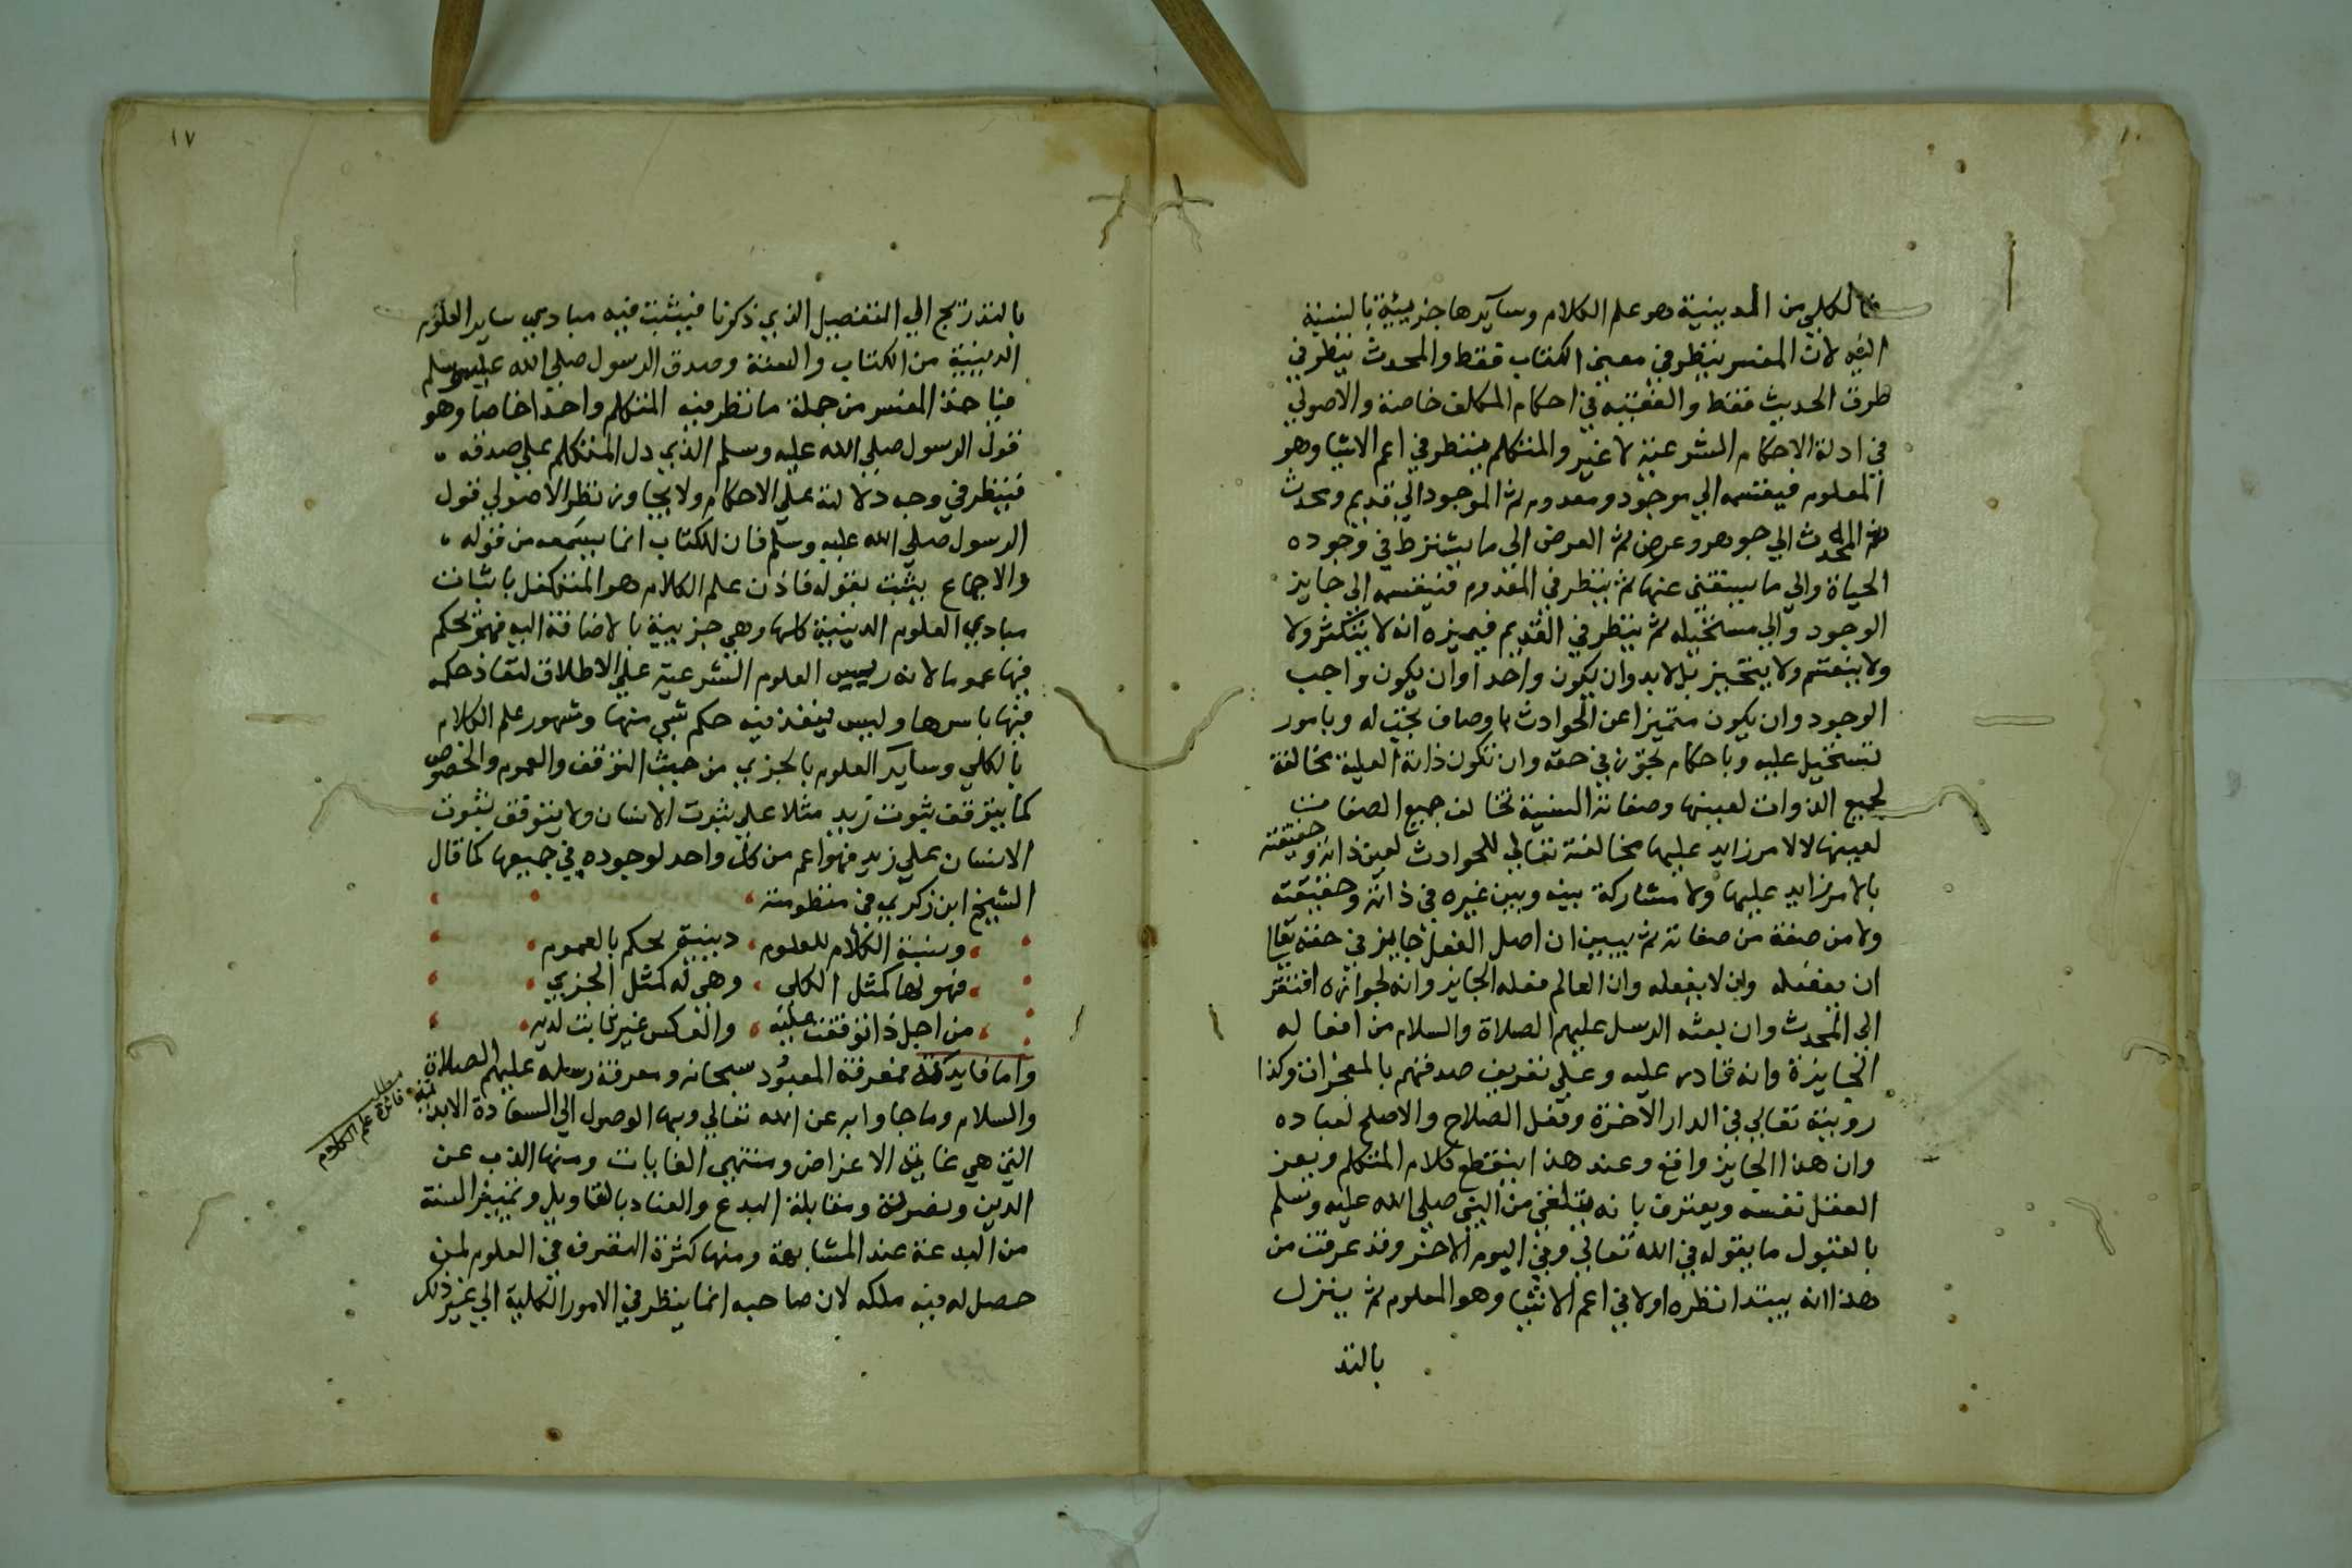 فالكلي من الدينية هو علم الكلام وسآيرها جزيئية بالنسبة
اليه لان المفسر ينظر في معنى الكتاب فقط والمحدث ينظر في
طرق الحديث فقط والفقيه في احكام المكلف خاصة والاصولي
في ادلة الاحكام الشرعية لا غير والمتكلم ينظر في اعم الاشيا وهو
المعلوم فيقسمه الي موجود ومعدوم ثم الموجود الي قديم ومحدث
ثم المحدث الي جوهر وعرض ثم العرض الي ما يشترط في وجوده
الحياة والي ما يستغني عنها ثم ينظر في المعدوم فيقسمه الى جايز
الوجود والي مستحيله ثم ينظر في القديم فيميزه انه لا يتكثر ولا
ولا ينقسم ولا يتحيز بل لابد وان يكون واحدا وان يكون واجب
الوجود وان يكون متميزا عن الحوادث باوصاف تجب له وبامور
تستحيل عليه وباحكام تجوز في حقه وان تكون ذاته العلية مخالفة
لجميع الذوات لعينها وصفاته السنية تخالف جميع الصفات
لعينها لالامر زايد عليها مخالفته تعالي للحوادث لعين ذاته وحقيقته
بالامر زايد عليها ولا مشاركة بينه وبين غيره في ذاته وحقيقته
ولا من صفة من صفاته ثم يبين ان اصل الفعل جايز في حقه تعا
ان يفعله وان لا يفعله وان العالم فعله الجايز وانه لجوازه افتقر
الي المحدث وان بعثه الرسل عليهم الصلاة والسلام من افعاله
الجايزة وانه قادر عليه وعلي تعريف صدقهم بالمعجزات وكذا
روية تعالي في الدار الاخرة وفعل الصلاح والاصلح لعباده
وان هذا الجايز واقع وعند هذا ينقطع كلام المتكلم ويعز
العقل نفسه ويعترف بانه يتلقي من النبي صلي الله عليه وسلم
بالقبول ما يقوله في الله تعالي وفي اليوم الاخر وقد عرفت من
هذا انه يبتدا نظره اولا في اعم الاشيا وهو المعلوم ثم ينزل
بالتد
١٧
بالتدريج الي التفصيل الذي ذكرنا فيثبت فيه مبادي ساير العلوم
الدينية من الكتاب والسنة وصدق الرسول صلي الله عليه وسلم
فياخذ المفسر من جملة ما نظر فيه المتكلم واحدا خاصا وهو
قول الرسول صلي الله عليه وسلم الذي دل المتكلم علي صدقه
فينظر في وجه دلالته علي الاحكام ولا يجاوز نظر الاصولي قول
الرسول صلي الله عليه وسلم فان الكتاب انما يسمعه من قوله
والاجماع يثبت بقوله فاذن علم الكلام هو المتكفل باثبات
مبادي العلوم الدينية كلها وهي جزيية بالاضافة اليه فهو يحكم
فيها عموما لانه رييس العلوم الشرعية علي الاطلاق لنفاذ حكمه
فيها باسرها وليس ينفذ فيه حكم شي منها وشهور علم الكلام
بالكلي وسايد العلوم بالجزي من حيث التوقف والعموم والخصوص
كما يتوقف ثبوت زيد مثلا علي ثبوت الانسان ولا يتوقف ثبوت
الانسان علي زيد فهو اعم من كل واحد لوجوده في جميعها كما قال
الشيخ ابن زكري في منظومته
ونسبة الكلام للعلوم دينية يحكم بالعموم
فهو لها كمثل الكلى وهي له كمثل الجزي
من اجل ذا توقفت عليه والعكس غير ثابت لديه
واما فايدته فمعرفة المعبود سبحانه ومعرفة رسله عليهم الصلاة
والسلام وما جاوا به عن الله تعالي وبها الوصول الي السعادة الابدية
التي هي غاية الاعراض ومنتهي الغايات ومنها الذب عن
الدين ونصرته ومقابلة البدع والعناد بالتاويل وتمييز السنة
من البدعة عند المشابهة ومنها كثرة التصرف في العلوم لمن
حصل له فيه ملكه لان صاحبه انما ينظر في الامور الكلية الي غير ذلك
مطلب
فائدة علم الكلام